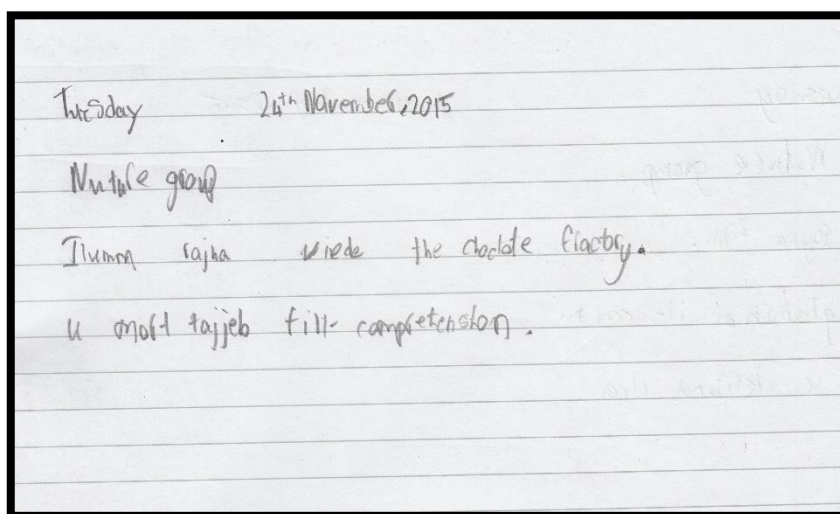 Tuesday 24th November, 2015
Nuture group
Ilumna rajna viede the choclate flactory.
u mort tajjeb fill-compretension.